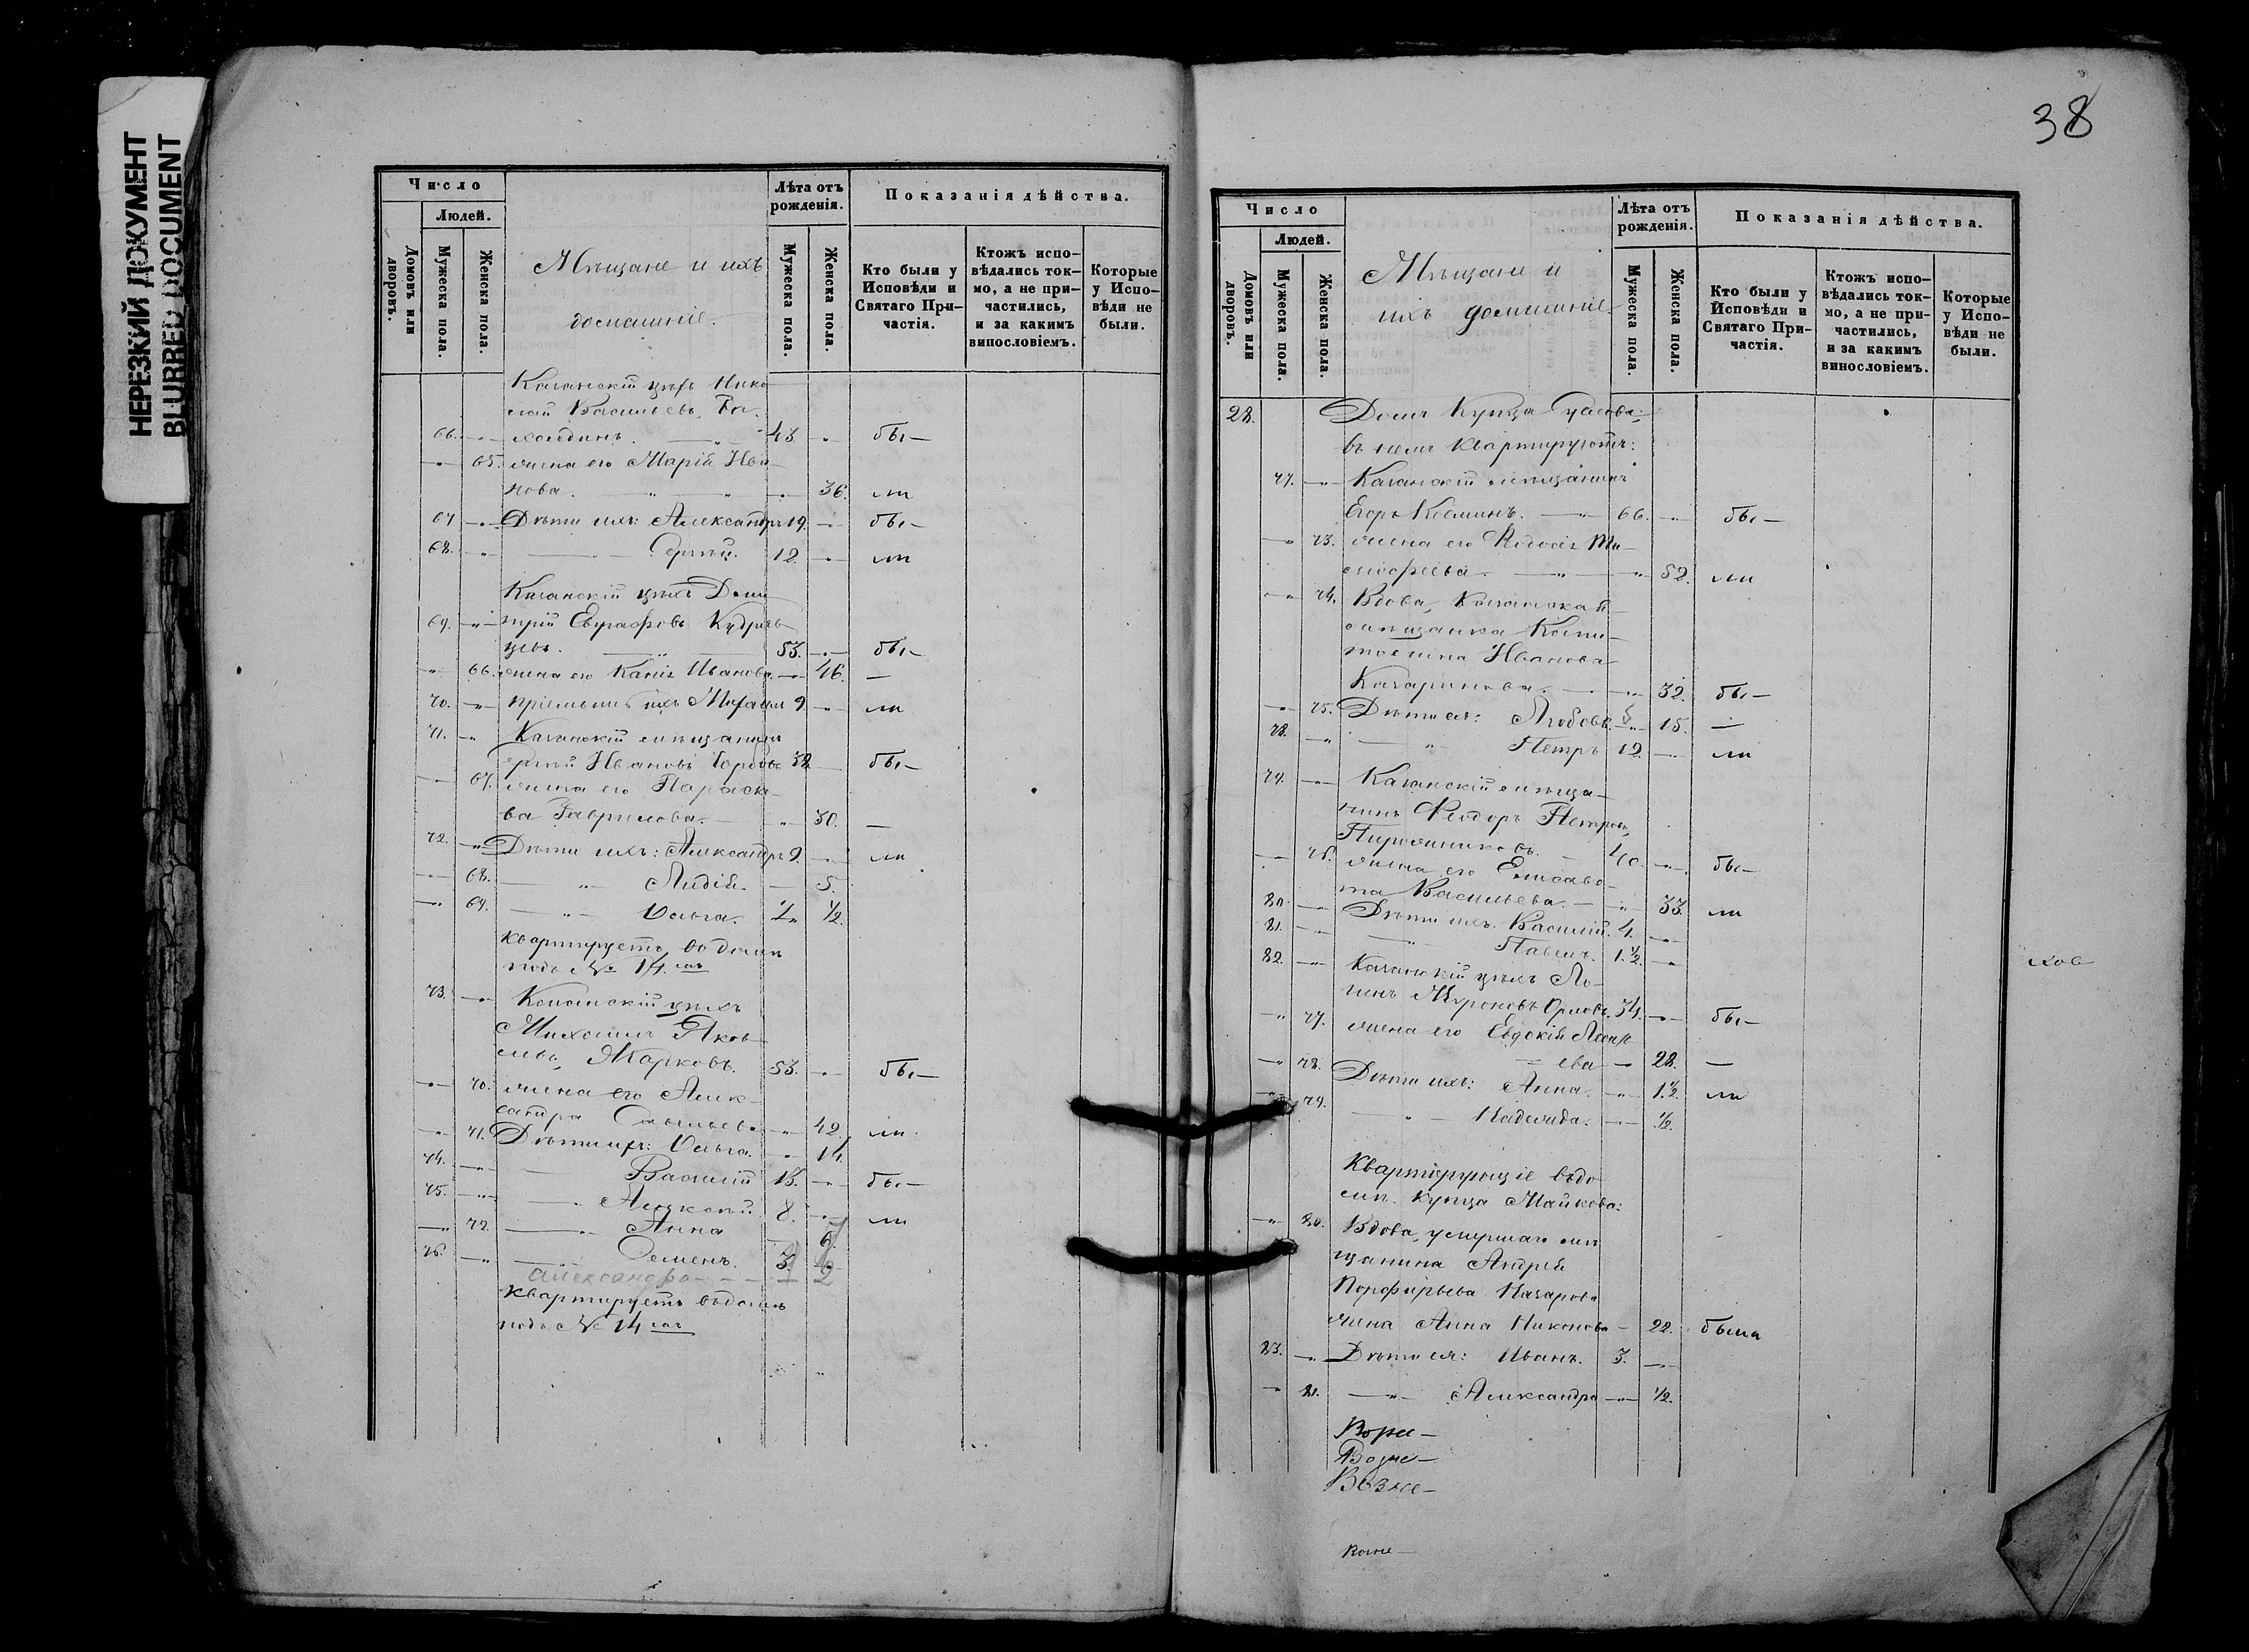 НЕРЕЗКИЙ ДОКУМЕНТ
BLURRED DOCUMENT
Число
Людей.
Домовъ или дворовъ.
Мужеска пола.
Женска пола.
Мѣщане и ихъ
домашніе.
Лѣта отъ рожденія.
Мужеска пола.
Женска пола.
Показанія дѣйства.
Кто были у Исповѣди и Святаго Причастія.
Ктожъ исповѣдались токмо, а не причастились, и за какимъ винословіемъ.
Которые у Исповѣди не были.
Казанскій цехъ Нико
лай Васильевъ
66. 43. бы—
65. жена его Марія Ива
нова. 36. ли
67 Дѣти ихъ: Александръ 19. бы—
68. Сергѣй. 12. ли
Казанскій цехъ Дми
69. трій Евграфовъ Кудряв
цевъ. 53. бы—
66. жена его Ивановa 46. —
70. пріемышъ ихъ Михаилъ 9. ли
71. Казанскій мѣщанинъ
Сергѣй Ивановъ 32 бы—
67. жена его Параске
ва Гаврилова. 30. —
72. Дѣти ихъ: Александръ 9. ли
68. Лидія. 5.
69. Ольга. ½
квартируетъ въ домѣ
подъ № 14.мъ
73. Казанскій цехъ
Михаилъ Яков
левъ Жарковъ. 53. бы—
70. жена его Алек
сандра 42. ли
71. Дѣти ихъ: Ольга. 14.
74. Василій 13. бы—
75. Алексѣй 8. ли
72. Анна
76. Семенъ. 3.
Александра 2
квартируетъ въ домѣ
подъ № 14мъ
38
Число
Людей.
Домовъ или дворовъ.
Мужеска пола.
Женска пола.
Мѣщане и
ихъ домашніе
Лѣта отъ рожденія.
Мужеска пола.
Женска пола.
Показанія дѣйства.
Кто были у Исповѣди и Святаго Причастія.
Ктожъ исповѣдались токмо, а не причастились, и за какимъ винословіемъ.
Которые у Исповѣди не были.
28. Домъ Купца
въ немъ квартируютъ:
77. Казанскій мѣщанинъ
Егоръ 66. бы—
73. жена его Ти
мофеева 52. ли
74. Вдова, Казанская
мѣщанка Капи
толина Иванова
32. бы—
75. Дѣти ея: Любовь 15. —
78. Петръ 12 ли
79. Казанскій мѣща
нинъ Ѳеодоръ Петровъ
Пирожниковъ. 40. бы—
76. жена его Елисаве
та Васильева. 33. ли
80. Дѣти ихъ Василій. 4.
81. Павелъ. 1.½
82. Казанскій цехъ Ло
гинъ Мироновъ Орловъ. 34. бы—
77. жена его Евдокія
ева 28. —
78. Дѣти ихъ: Анна. 1.½ ли
79. Надежда. ½
Квартирующіе въ до
мѣ купца Майкова:
80. Вдова, умершаго мѣ
щанина Андрея
Порфирьева Назарова
жена Анна Никонова 22. была
83. Дѣти ея: Иванъ. 3.
81. Александра ½
ков
Возне—